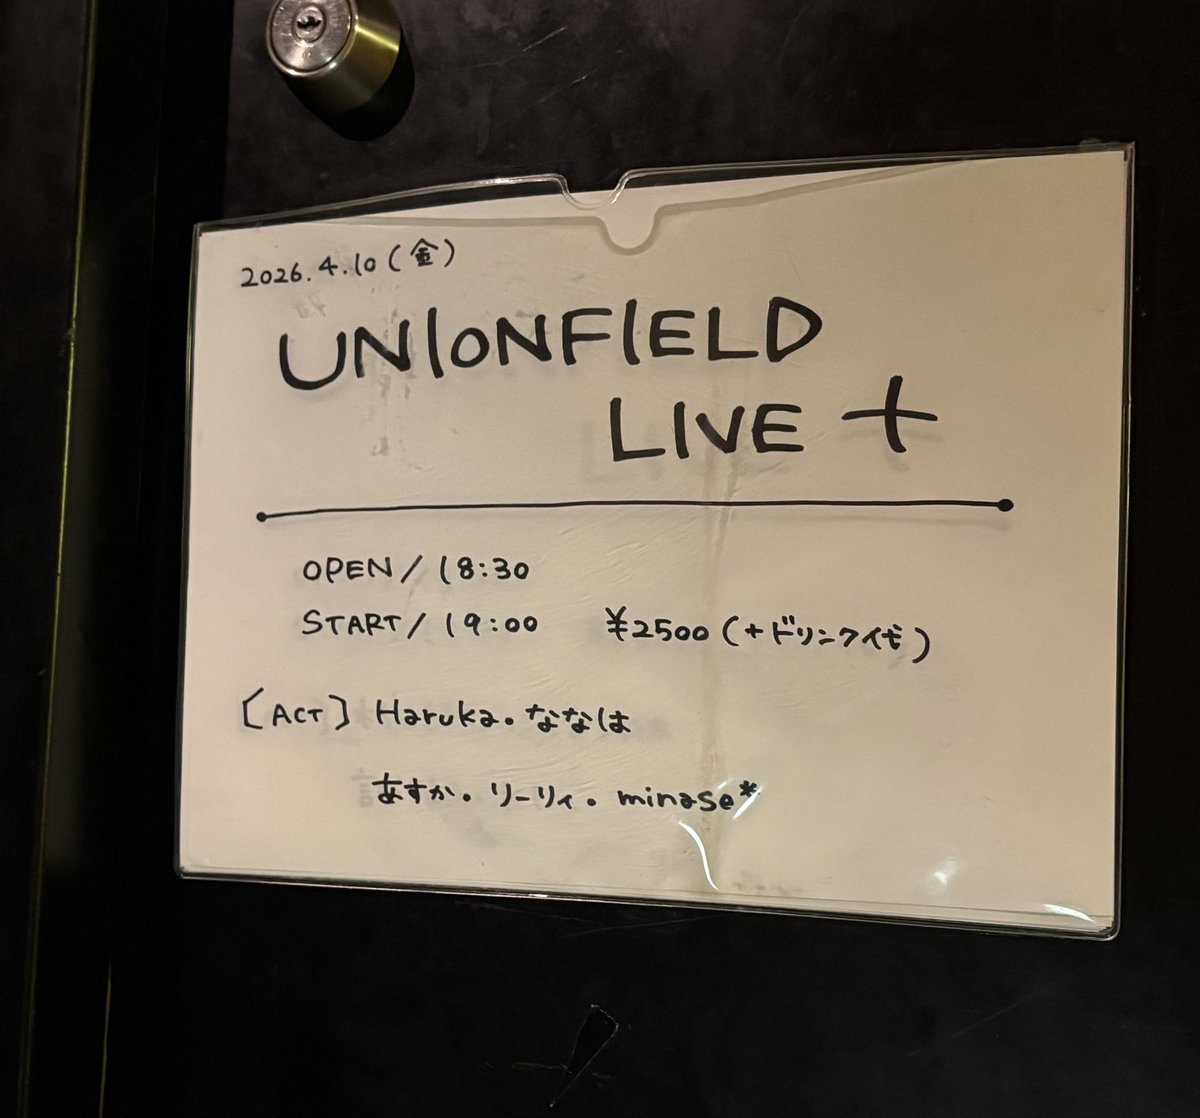 2026.4.10(金)
UNIONFIELD
LIVE +
OPEN/18:30
START/19:00 ¥2500(+ドリンク代)
[ACT] Haruka.ななは
あすか.リーリィ.minase*